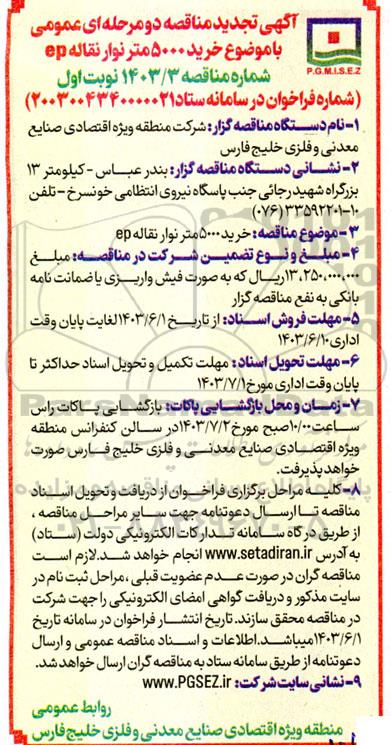 آگهی تجدید مناقصه دو مرحله ای عمومی
با موضوع خرید ۵۰۰۰ متر نوار نقاله ep
شماره مناقصه ۱۴۰۳/۳ نوبت اول
P.G.M.I.S.E.Z
(شماره فراخوان در سامانه ستاد ۲۰۰۳۰۰۴۳۴۰۰۰۰۰۲۱)
۱-نام دستگاه مناقصه گزار: شرکت منطقه ویژه اقتصادی صنایع
معدنی و فلزی خلیج فارس
۲- نشانی دستگاه مناقصه گزار: بندر عباس - کیلومتر ۱۳
بزرگراه شهید رجائی جنب پاسگاه نیروی انتظامی خونسرخ - تلفن
۱۰-۳۳۵۹۲۲۰۱ (۰۷۶)
۳- موضوع مناقصه: خرید ۵۰۰۰ متر نوار نقاله ep
۴- مبلغ و نوع تضمین شرکت در مناقصه: مبلغ
۱۳،۲۵۰،۰۰۰،۰۰۰ ریال که به صورت فیش واریزی یا ضمانت نامه
بانکی به نفع مناقصه گزار
۵- مهلت فروش اسناد: از تاریخ ۱۴۰۳/۶/۱ لغایت پایان وقت
اداری ۱۴۰۳/۶/۱۰
۶- مهلت تحویل اسناد: مهلت تکمیل و تحویل اسناد حداکثر تا
پایان وقت اداری مورخ ۱۴۰۳/۷/۱
۷- زمان و محل بازگشایی پاکات: بازگشایی پاکات راس
ساعت ۱۰/۰۰ صبح مورخ ۱۴۰۳/۷/۲ در سالن کنفرانس منطقه
ویژه اقتصادی صنایع معدنی و فلزی خلیج فارس صورت
خواهد پذیرفت.
۸- کلیه مراحل برگزاری فراخوان از دریافت و تحویل اسناد
مناقصه تا ارسال دعوتنامه جهت سایر مراحل مناقصه ،
از طریق درگاه سامانه تدارکات الکترونیکی دولت (ستاد)
به آدرس www.setadiran.ir انجام خواهد شد. لازم است
مناقصه گران در صورت عدم عضویت قبلی ، مراحل ثبت نام در
سایت مذکور و دریافت گواهی امضای الکترونیکی را جهت شرکت
در مناقصه محقق سازند. تاریخ انتشار فراخوان در سامانه تاریخ
۱۴۰۳/۶/۱ میباشد. اطلاعات و اسناد مناقصه عمومی و ارسال
دعوتنامه از طریق سامانه ستاد به مناقصه گران ارسال خواهد شد.
۹- نشانی سایت شرکت: www.PGSEZ.ir
روابط عمومی
منطقه ویژه اقتصادی صنایع معدنی و فلزی خلیج فارس